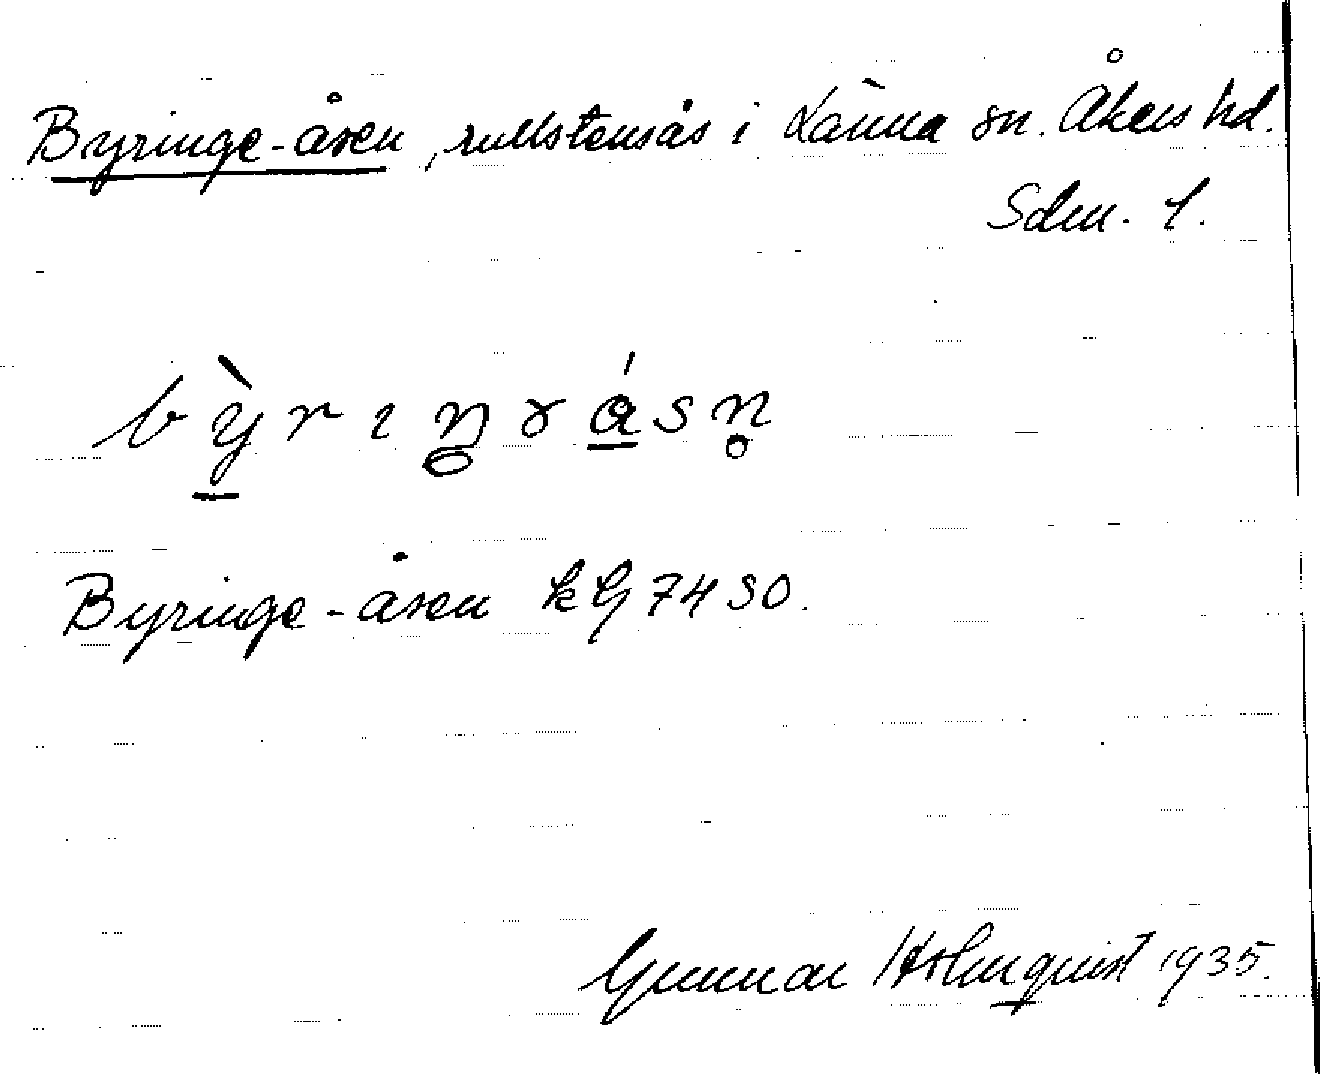 Byringe-åsen, rullstensås i Länna sn. Åkers hd.
Sdm. l.
Byringe-åsen
Gunnar Holmquist 1935.